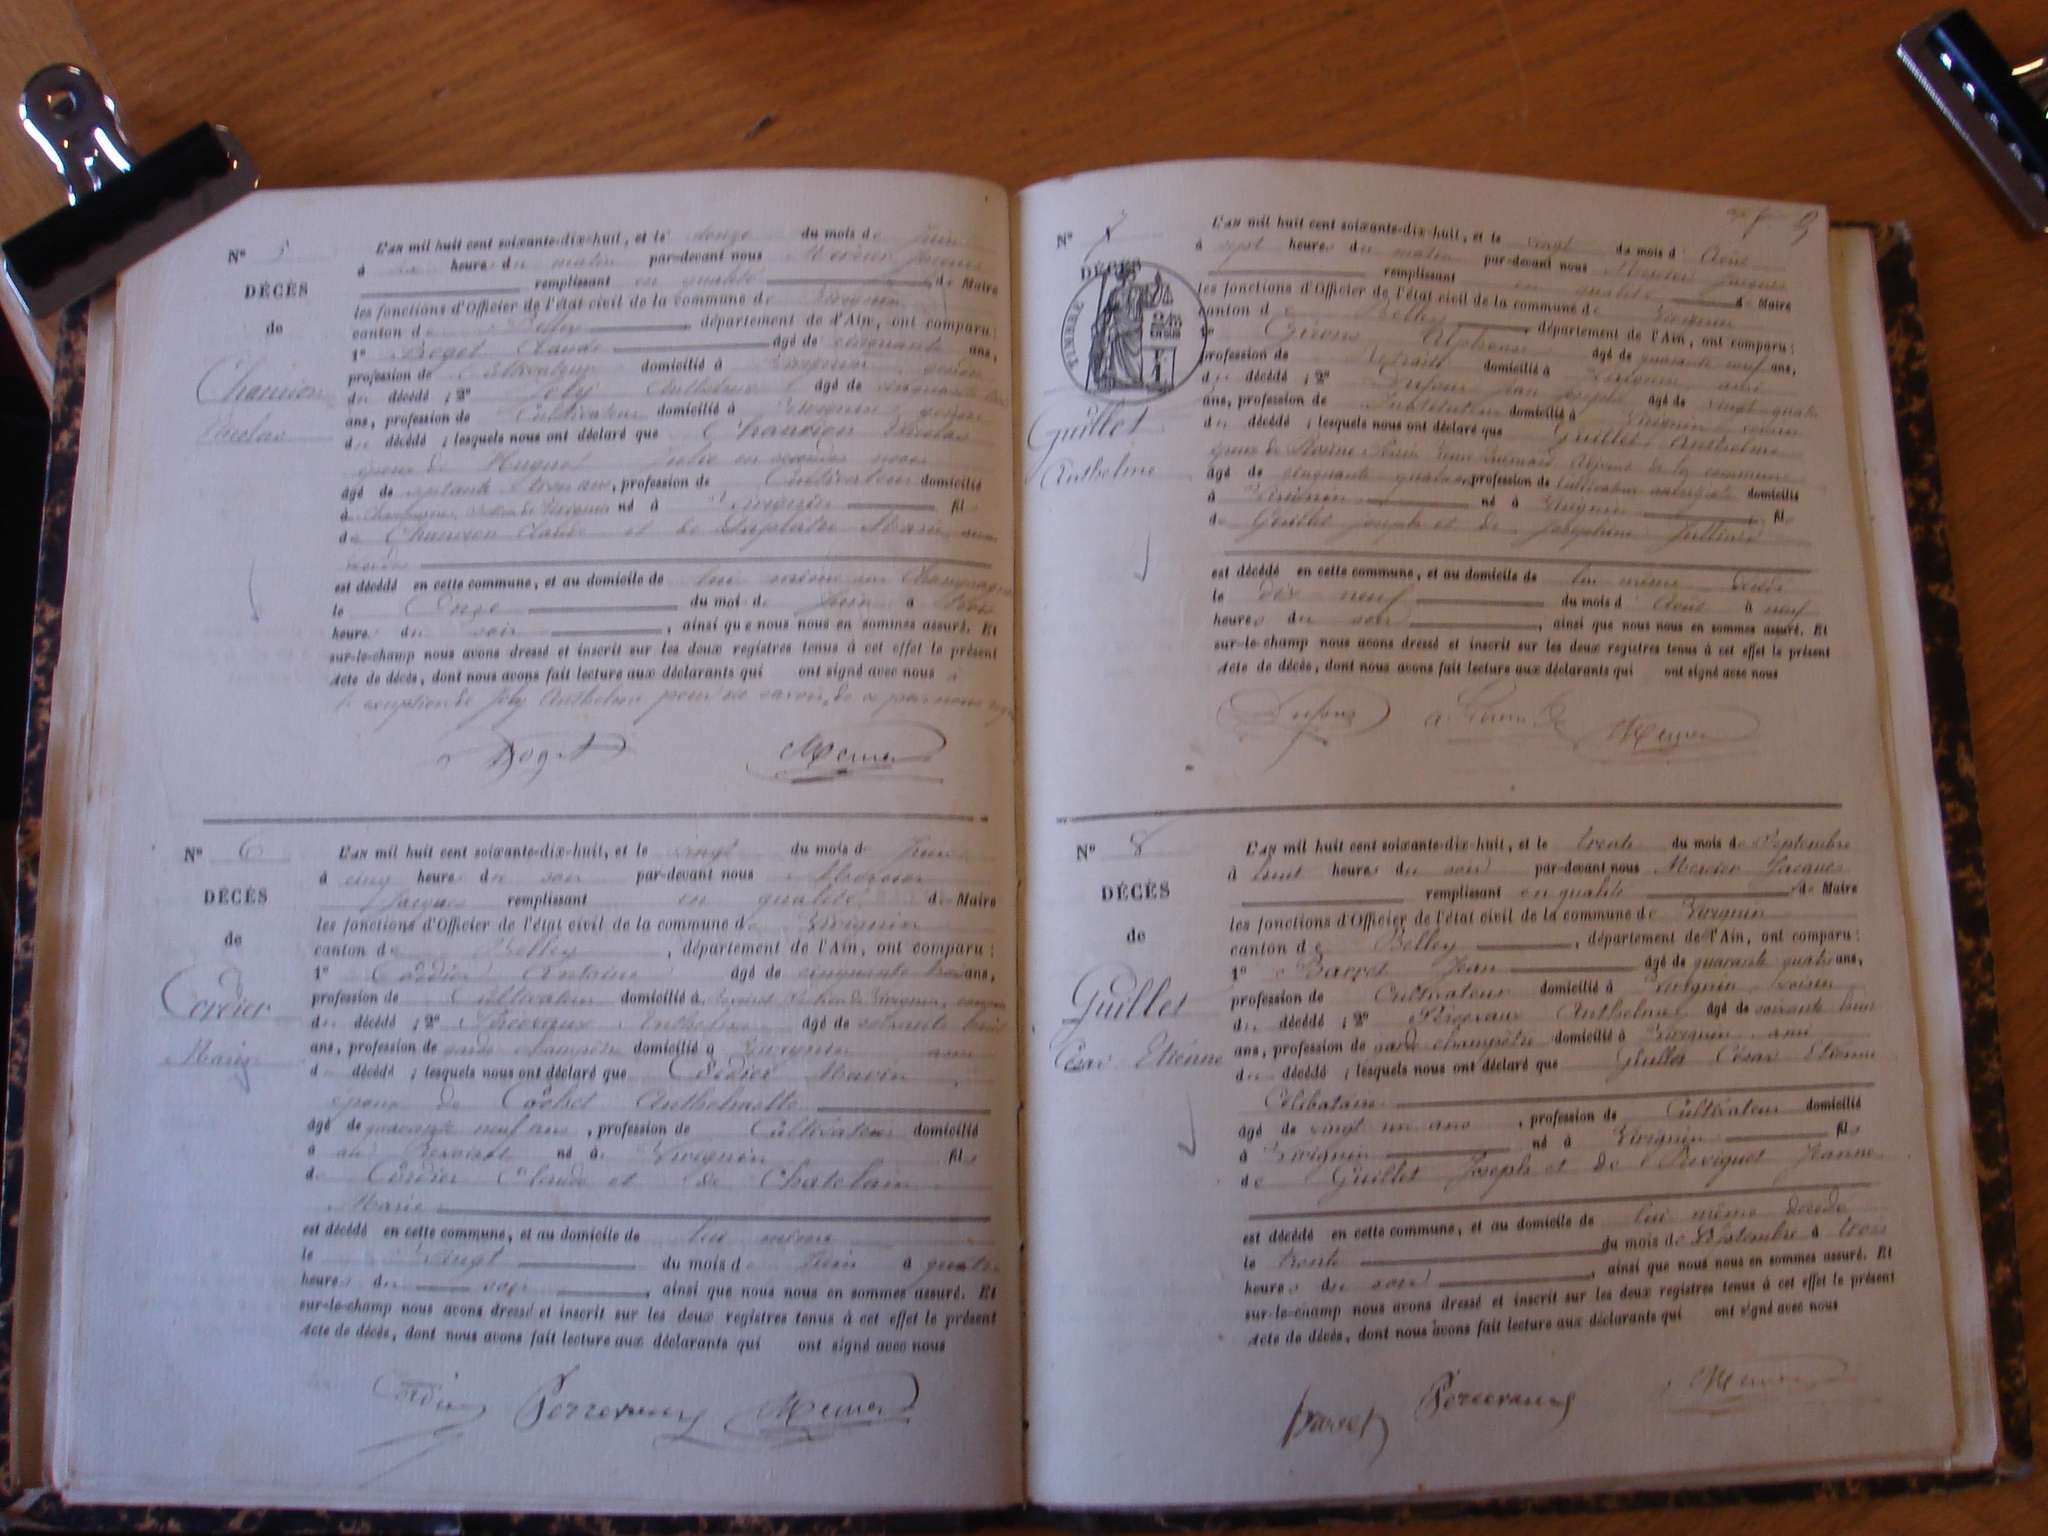 N° 5
DÉCÈS
de
Chanvion
Nicolas
L'AN mil huit cent soixante-dix-huit, et le douze du mois de Juin
à heures du matin par-devant nous Mercier Jacques
remplissant en qualité de Maire
les fonctions d'Officier de l'état civil de la commune de Virignin
canton de Belley département de l'Ain, ont comparu:
1° Roget Claude âgé de cinquante ans,
profession de Cultivateur domicilié à Virignin gendre
du décédé; 2° Joly Anthelme âgé de cinquante
ans, profession de Cultivateur domicilié à Virignin gendre
du décédé; lesquels nous ont déclaré que Chanvion Nicolas
époux de Huguet Julie en secondes noces
âgé de septante trois ans, profession de Cultivateur domicilié
à section de Virignin né à Virignin fils
de Chanvion Claude et de Marie
est décédé en cette commune, et au domicile de lui même
le Onze du mois de Juin à trois
heures du soir, ainsi que nous nous en sommes assuré. Et
sur-le-champ nous avons dressé et inscrit sur les deux registres tenus à cet effet le présent
Acte de décès, dont nous avons fait lecture aux déclarants qui ont signé avec nous à
l'exception de Joly Anthelme pour ne savoir, de ce par nous
Roget Mercier
N° 6
DÉCÈS
de
Cordier
Marin
L'AN mil huit cent soixante-dix-huit, et le vingt du mois de Juin
à cinq heures du soir par-devant nous Mercier
Jacques remplissant en qualité de Maire
les fonctions d'Officier de l'état civil de la commune de Virignin
canton de Belley, département de l'Ain, ont comparu:
1° Cordier Antoine âgé de cinquante trois ans,
profession de Cultivateur domicilié à section de Virignin
du décédé; 2° Perceveaux Anthelme âgé de soixante huit
ans, profession de garde champêtre domicilié à Virignin ami
du décédé; lesquels nous ont déclaré que Cordier Marin
époux de Cochet Anthelmette
âgé de quarante neuf ans, profession de Cultivateur domicilié
à né à Virignin fils
de Cordier Claude et de Chatelain
Marie
est décédé en cette commune, et au domicile de lui même
le Vingt du mois de Juin à quatre
heures du soir, ainsi que nous nous en sommes assuré. Et
sur-le-champ nous avons dressé et inscrit sur les deux registres tenus à cet effet le présent
Acte de décès, dont nous avons fait lecture aux déclarants qui ont signé avec nous
Cordier Perceveaux Mercier
N° 7
DÉCÈS
TIMBRE
Guillet
Anthelme
L'AN mil huit cent soixante-dix-huit, et le vingt du mois d'Août
à sept heures du matin par-devant nous Mercier Jacques
remplissant en qualité de Maire
les fonctions d'Officier de l'état civil de la commune de Virignin
canton de Belley, département de l'Ain, ont comparu:
Alphonse âgé de quarante neuf ans,
profession de Retraité domicilié à Virignin ami
du décédé; 2° Dufour Jean Joseph âgé de vingt quatre
ans, profession de Instituteur domicilié à Virignin voisin
du décédé; lesquels nous ont déclaré que Guillet Anthelme
époux de adjoint de la commune
âgé de cinquante quatre profession de Cultivateur domicilié
à Virignin né à Virignin fils
de Guillet Joseph et de Josephine
est décédé en cette commune, et au domicile de lui même décédé
le dix neuf du mois d'Août à neuf
heures du soir, ainsi que nous nous en sommes assuré. Et
sur-le-champ nous avons dressé et inscrit sur les deux registres tenus à cet effet le présent
Acte de décès, dont nous avons fait lecture aux déclarants qui ont signé avec nous
Dufour Mercier
N° 8
DÉCÈS
de
Guillet
César Etienne
L'AN mil huit cent soixante-dix-huit, et le trente du mois de Septembre
à huit heures du soir par-devant nous Mercier Jacques
remplissant en qualité de Maire
les fonctions d'Officier de l'état civil de la commune de Virignin
canton de Belley, département de l'Ain, ont comparu:
1° Barret Jean âgé de quarante quatre ans,
profession de Cultivateur domicilié à Virignin voisin
du décédé; 2° Perceveaux Anthelme âgé de soixante huit
ans, profession de garde champêtre domicilié à Virignin ami
du décédé; lesquels nous ont déclaré que Guillet César Etienne
Célibataire
âgé de vingt un ans, profession de Cultivateur domicilié
à Virignin né à Virignin fils
de Guillet Joseph et de Jeanne
est décédé en cette commune, et au domicile de lui même décédé
le trente du mois de Septembre à trois
heures du soir, ainsi que nous nous en sommes assuré. Et
sur-le-champ nous avons dressé et inscrit sur les deux registres tenus à cet effet le présent
Acte de décès, dont nous avons fait lecture aux déclarants qui ont signé avec nous
Barret Perceveaux Mercier